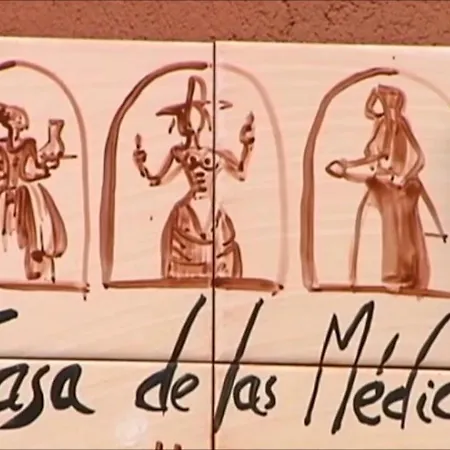 Casa de las Médic